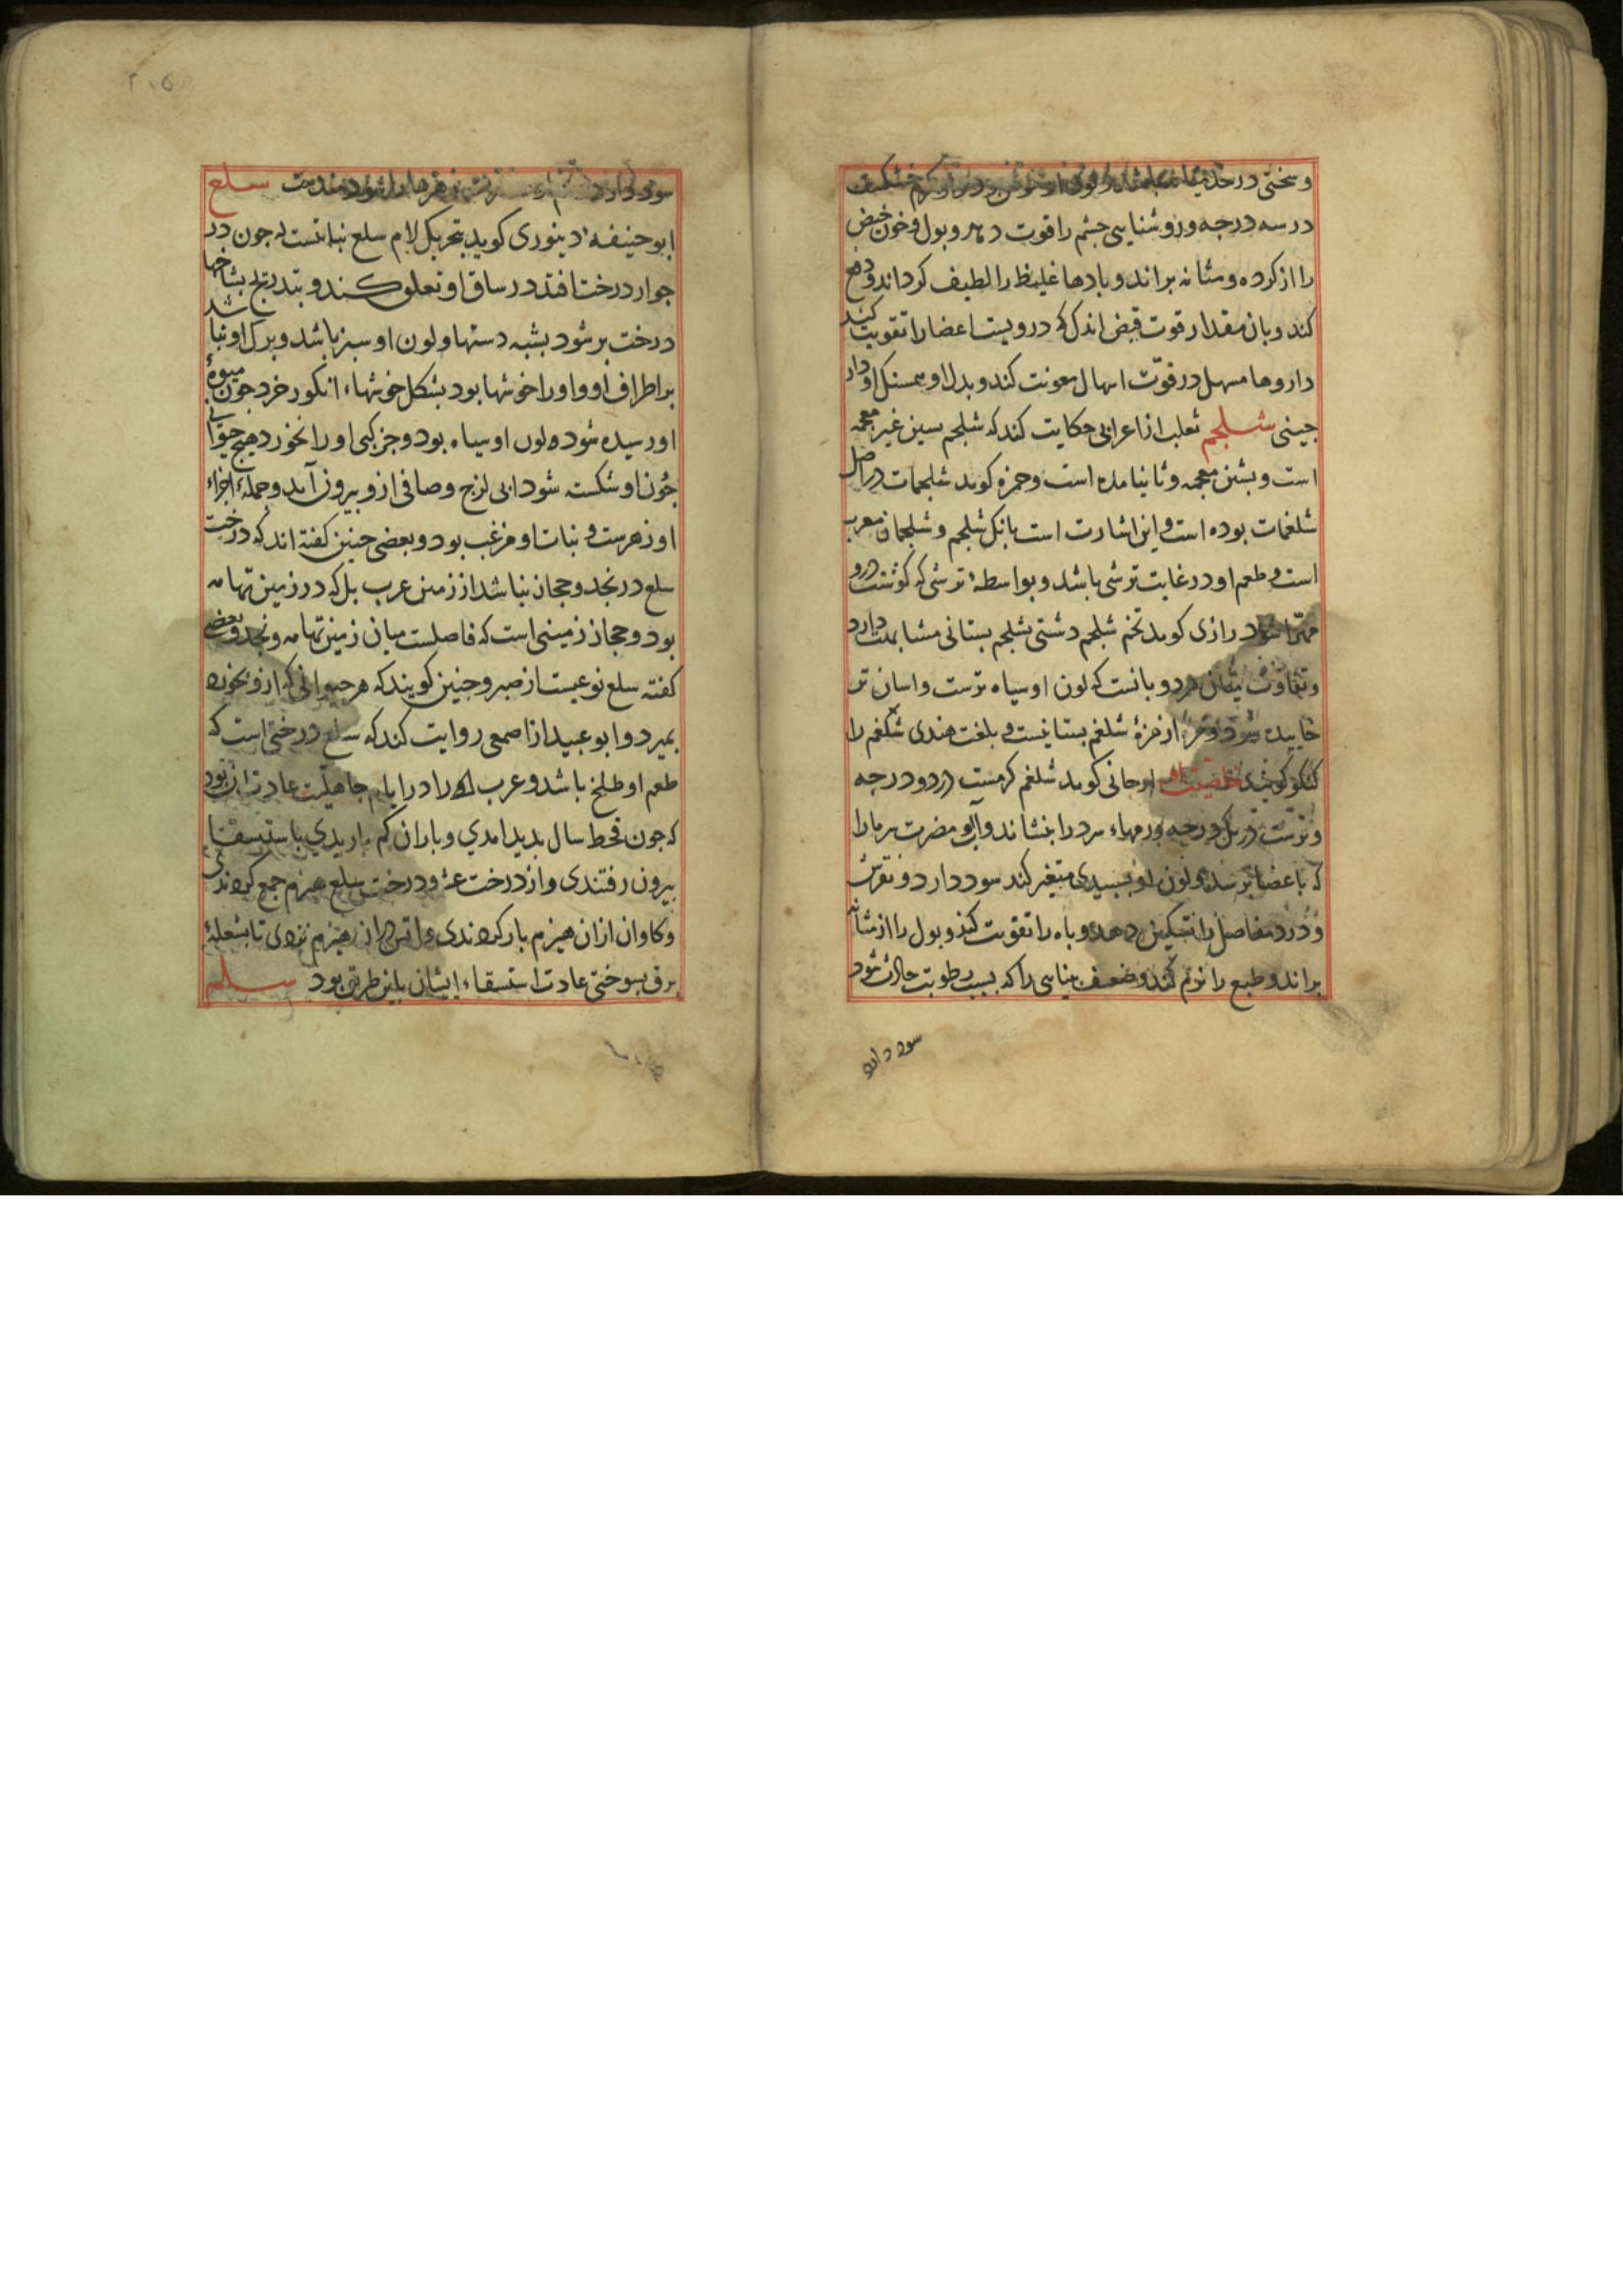 وسختی در
در سه درجه و روشنایی چشم را قوت دهد و بول و خون حیض
را از کرده و مثانه براند و بادها غلیظ را لطیف کرداند و دفع
کند و بان مقدار قوت قبض اندک که درویست اعضا را تقویت کند
داروها مسهل در قوت اسهال معونت کند و بدل او بسنکل او دار
جینی شلجم ثعلب از اعرابی حکایت کند که شلجم بسین غیر معجمه
است و بشین معجمه و ثا نیامده است و حمزه کوید شلجمات در اصل
شلغمات بوده است و این اشارت است بانک شلجم و شلجمان معرب
است و طعم او در غایت ترشی باشد و بواسطهٔ ترشی که کوشت درو
مهرا شود رازی کوید تخم شلجم دشتی بشلجم بستانی مشابهت دارد
و تفاوت میان هردو بانست که لون او سیاه ترست و اسان تر
خاییده شود و مزهٔ او از مزهٔ شلغم بستانیست و بلغت هندی شلغم را
کنکلو کویند خاصیت او ارجانی کوید شلغم کرمست در دو درجه
و ترست در یک درجه و ورمهاء سرد را بنشاند و آب او مضرت سرما را
که باعضا برسد و لون او بسبیدی متغیر کند سود دارد و نقرس
و درد مفاصل را تسکین دهد و باه را تقویت کند و بول را از مثانه
براند و طبع را نرم کند و ضعف بینایی را که بسبب رطوبت حادث شود
سود دارد
سود دارد زهرها را سودمندست سلع
ابو حنیفهٔ دینوری کوید بتحریک لام سلع نباتست که جون در
جوار درخت افتد در ساق او تعلق کند و بتدریج بشاخها
درخت بر شود بشبه دستها و لون او سبز باشد و برک او نباشد
بر اطراف او و او را خوشها بود بشکل خوشهاء انکور خرد جون میوهٔ
او رسیده شود لون او سیاه بود و جز کبی او را نخورد هیچ حیوانی
جون او شکسته شود ابی لزج و صافی ازو بیرون آید و جملهٔ اجزاء
او زهرست و نبات او مرغب بود و بعضی جنین کفته اند که درخت
سلع در نجد و حجاز نباشد از زمین عرب بلکه در زمین تهامه
بود و حجاز زمینی است که فاصلست میان زمین تهامه و نجد و بعضی
کفته سلع نوعیست از صبر و جنین کویند که هر حیوانی که ازو بخورد
بمیرد و ابو عبید از اصمعی روایت کند که سلع درختی است که
طعم او طلخ باشد و عرب را در ایام جاهلیت عادت ان بود
که جون قحط سال بدید امدی و باران کم باریدی باستسقا
بیرون رفتندی و از درخت عشر و درخت سلع هیزم جمع کردندی
و کاوان ازان هیزم بار کردندی و اتش دران هیزم زدی تا بشعلهٔ
برق بسوختی عادت استسقاء ایشان باین طریق بود سلم